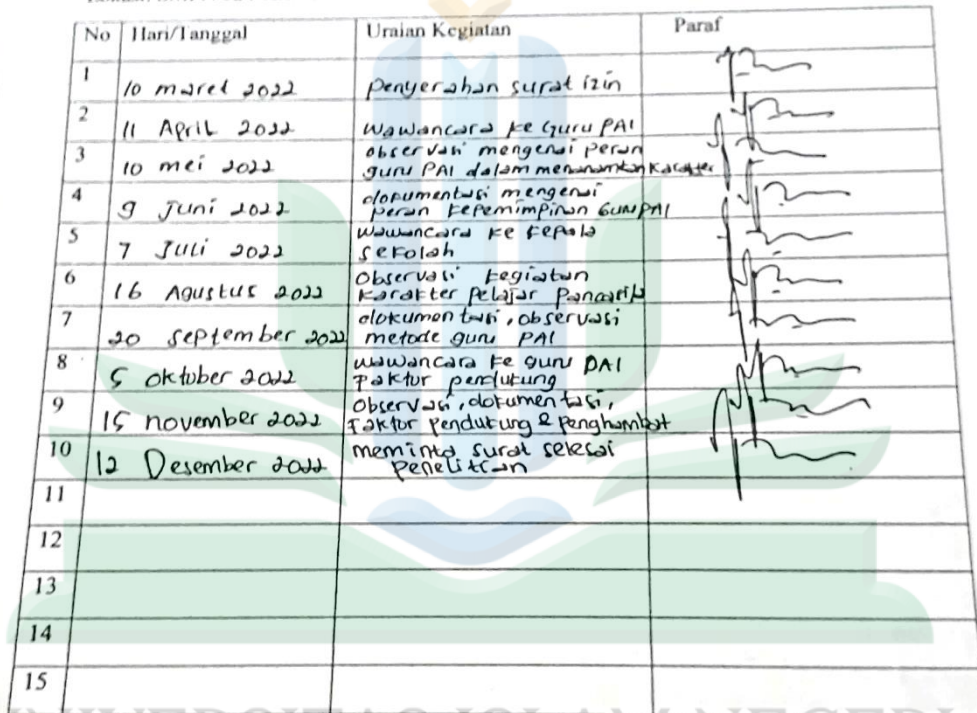 No Hari/Tanggal Uraian Kegiatan Paraf
1 10 maret 2022 penyerahan surat izin
2 11 April 2022 wawancara ke Guru PAI
3 10 mei 2022 observasi mengenai peran
guru PAI dalam menanamkan karakter
4 9 Juni 2022 dokumentasi mengenai
peran kepemimpinan Guru PAI
5 7 Juli 2022 wawancara ke kepala
sekolah
6 16 Agustus 2022 observasi kegiatan
karakter pelajar pancasila
7 20 september 2022 dokumentasi, observasi
metode guru PAI
8 5 oktober 2022 wawancara ke guru PAI
faktor pendukung
9 15 november 2022 observasi, dokumentasi,
faktor pendukung & penghambat
10 12 Desember 2022 meminta surat selesai
penelitian
11
12
13
14
15
UNIVERSITAS ISLAM NEGERI